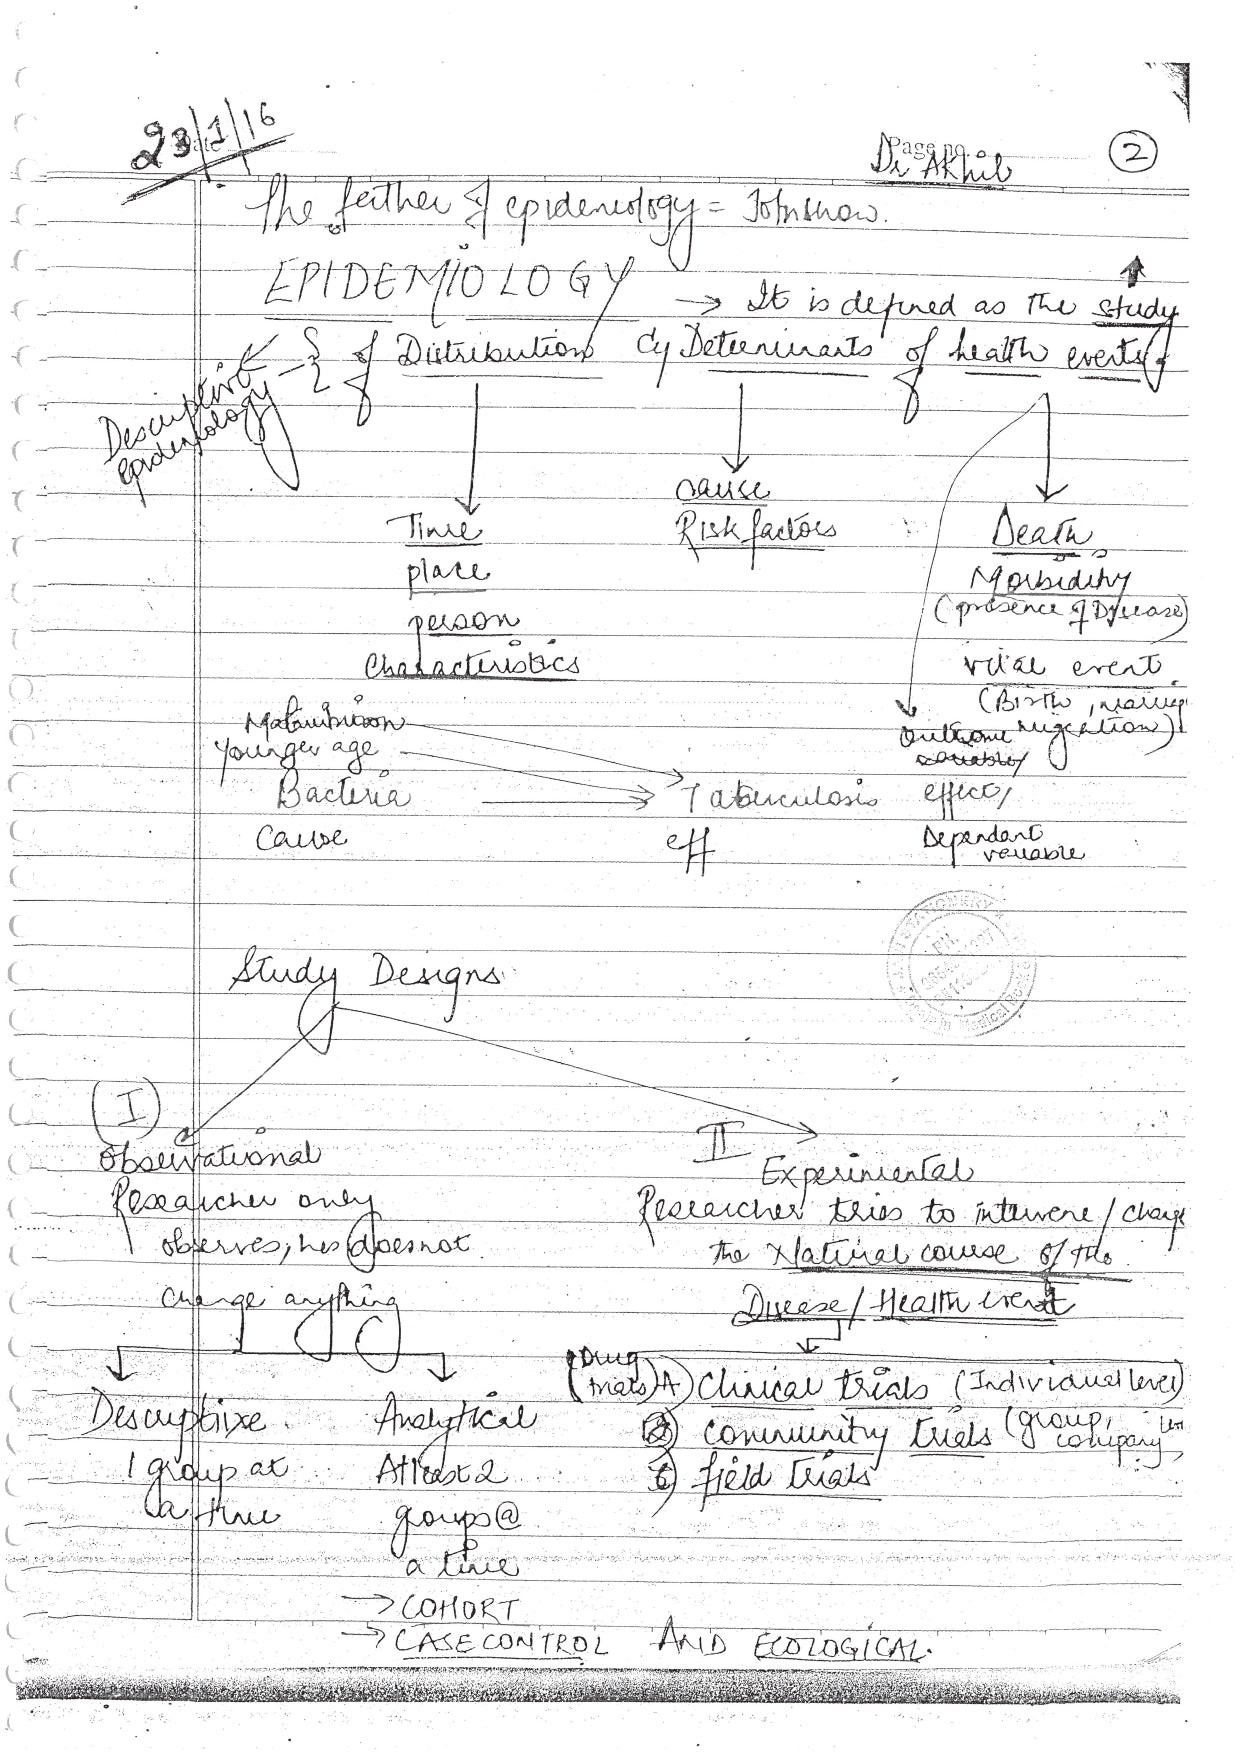 23/1/16
Page no.
Dr Akhil
2
The father of epidemiology = John snow.
EPIDEMIOLOGY → It is defined as the study
of Distribution Cy Determinants of health events.
Descriptive
Epidemiology
cause
Time Risk factors Death,
place Morbidity
(presence of Disease)
person
Characteristics vital event
(Birth, marriage
migration)
Malnutrition outcome
younger age variable/
Bacteria → Tuberculosis effect/
Cause eff Dependant
variable
Study Designs
(I) II
Observational Experimental
Researcher only Researcher tries to intervene / change
observes, he doesnot the Natural course of the
change anything Disease / Health event
(Drug
trials) A) Clinical trials (Individual level)
Descriptive Analytical B) community trials (group,
company
1 group at Atleast 2 C) field trials
a time groups @
a time
→ COHORT
→ CASE CONTROL AND ECOLOGICAL.